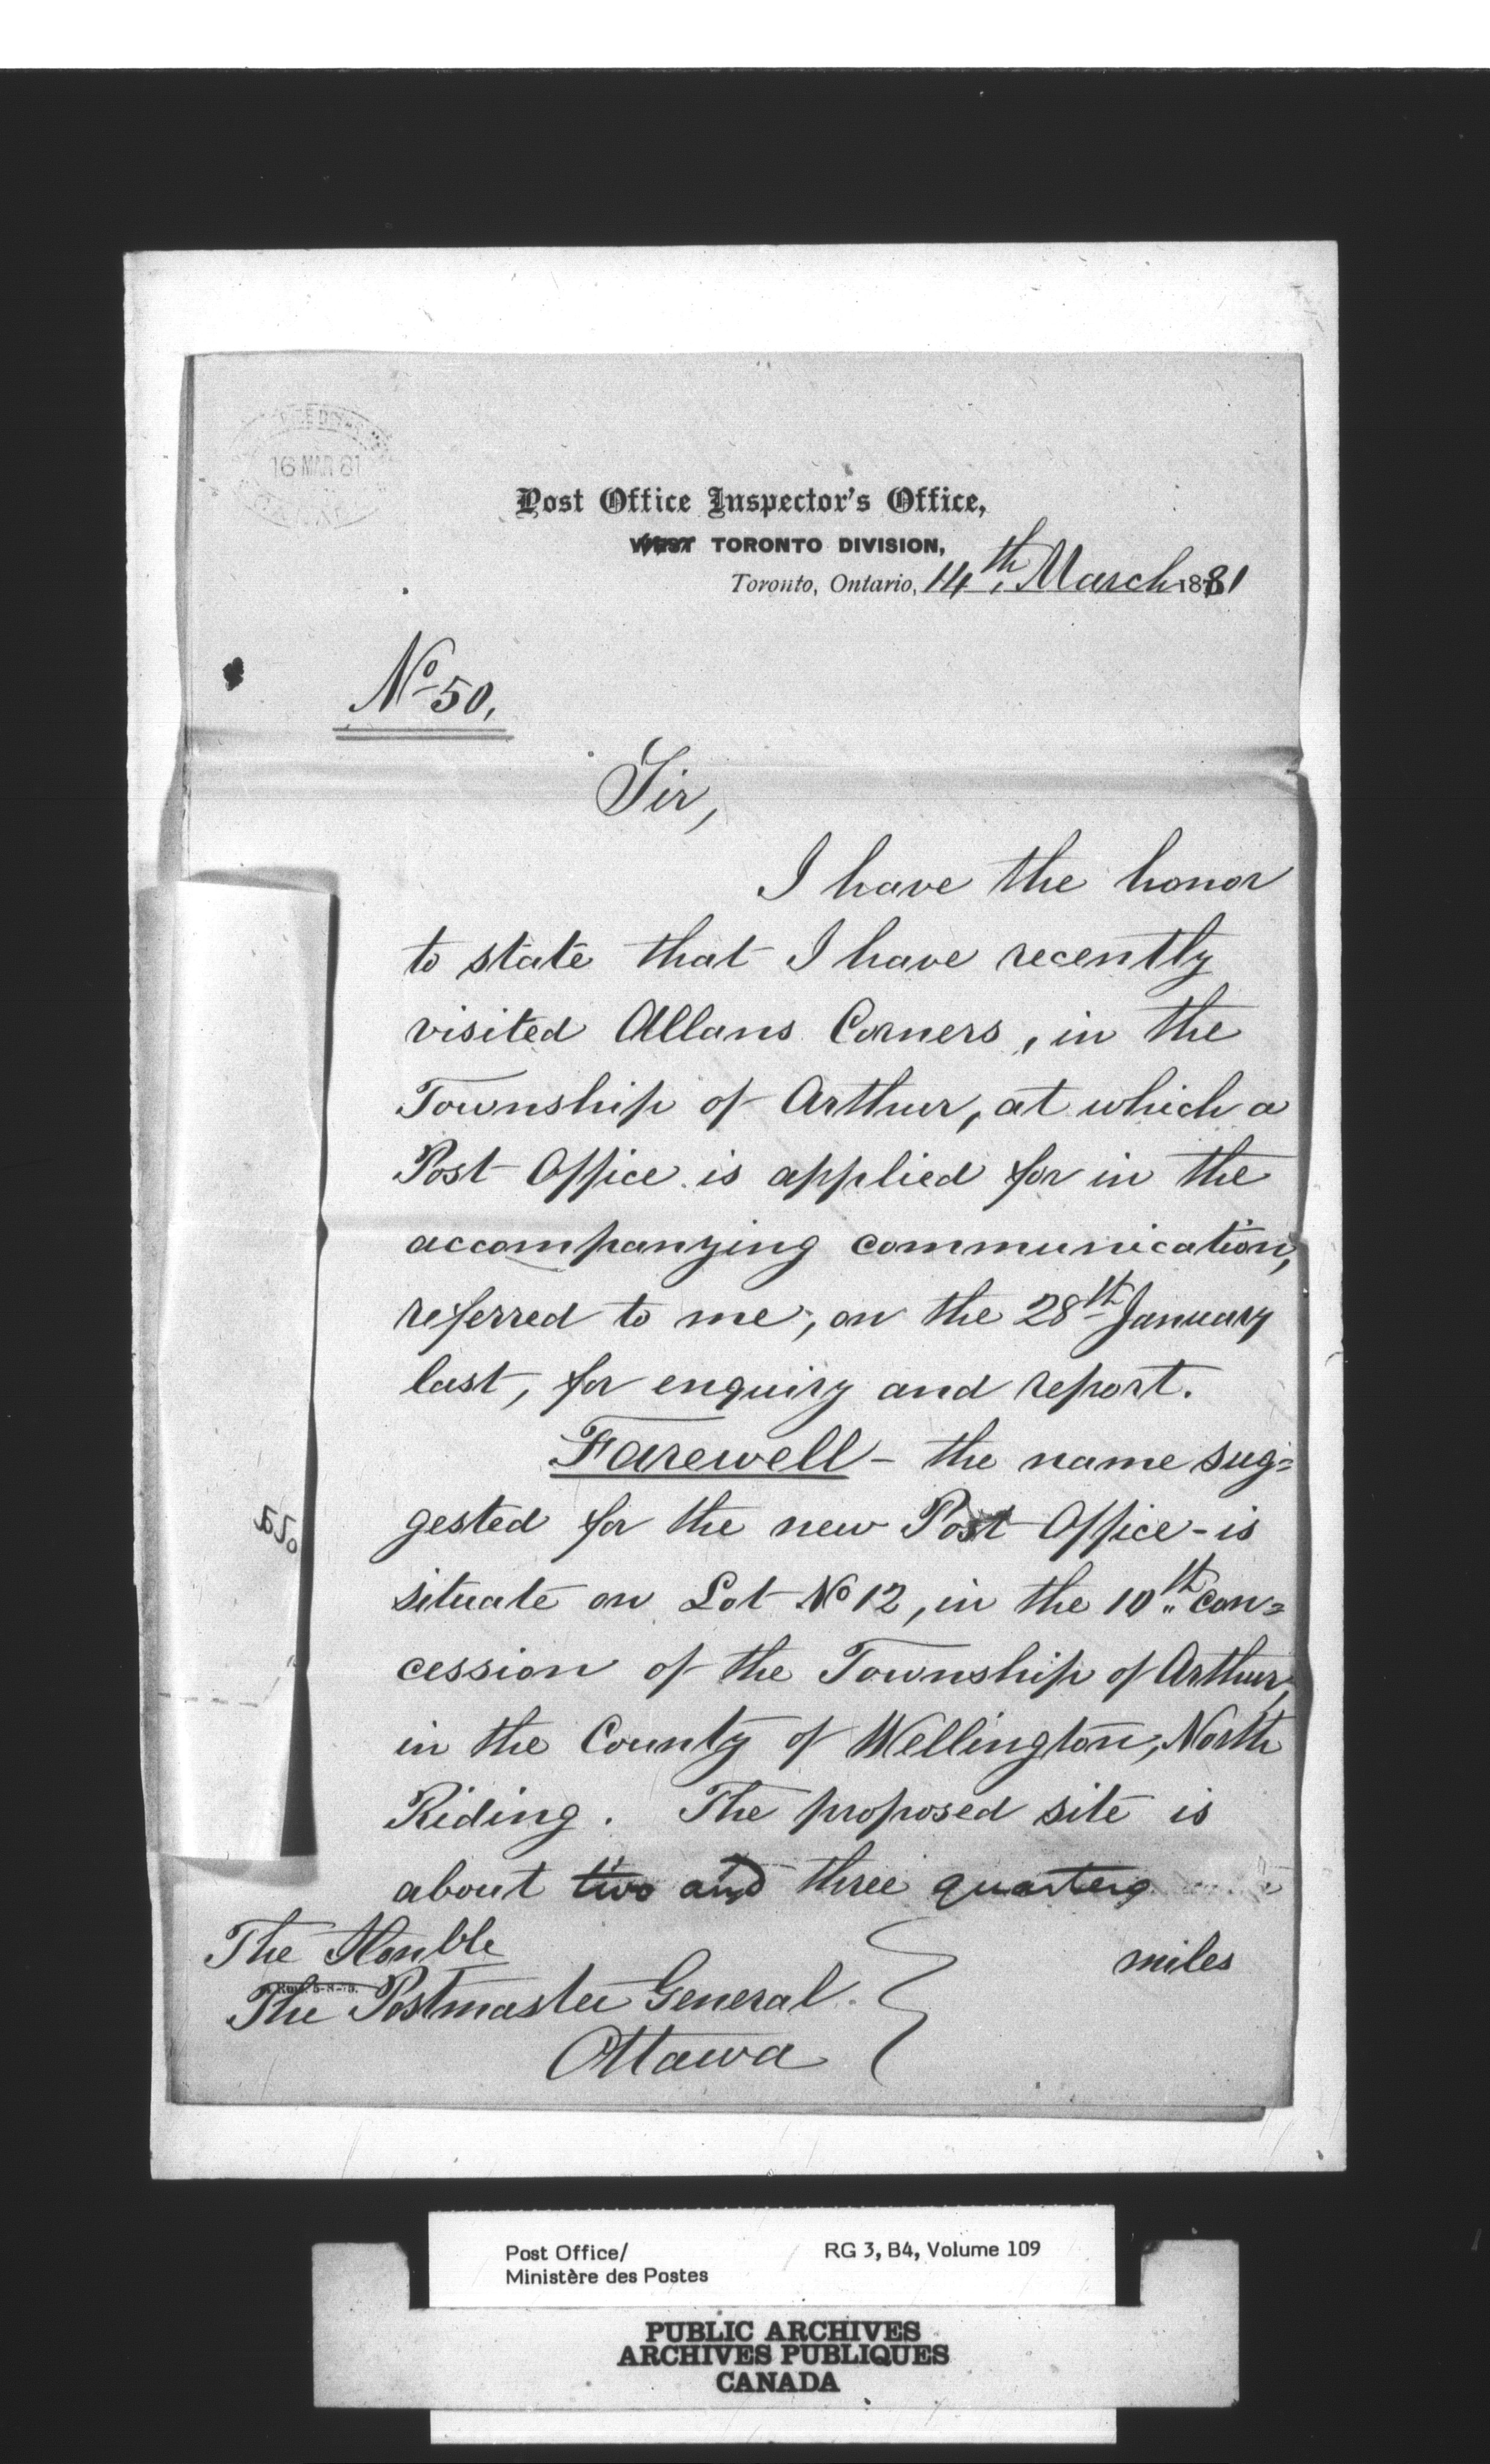 16 MAR 81
Post Office Inspector's Office,
WEST TORONTO DIVISION,
Toronto, Ontario, 14th, March 1881
No 50,
Sir,
I have the honor
to state that I have recently
visited Allans Corners, in the
Township of Arthur, at which a
Post Office is applied for in the
accompanying communication,
referred to me, on the 28th January
last, for enquiry and report.
Farewell - the name sug=
gested for the new Post Office - is
situate on Lot No 12, in the 10th con=
cession of the Township of Arthur,
in the County of Wellington, North
Riding. The proposed site is
about two and three quarters
miles
The Honble
The Postmaster General
Ottawa
Post Office/ RG 3, B4, Volume 109
Ministère des Postes
PUBLIC ARCHIVES
ARCHIVES PUBLIQUES
CANADA